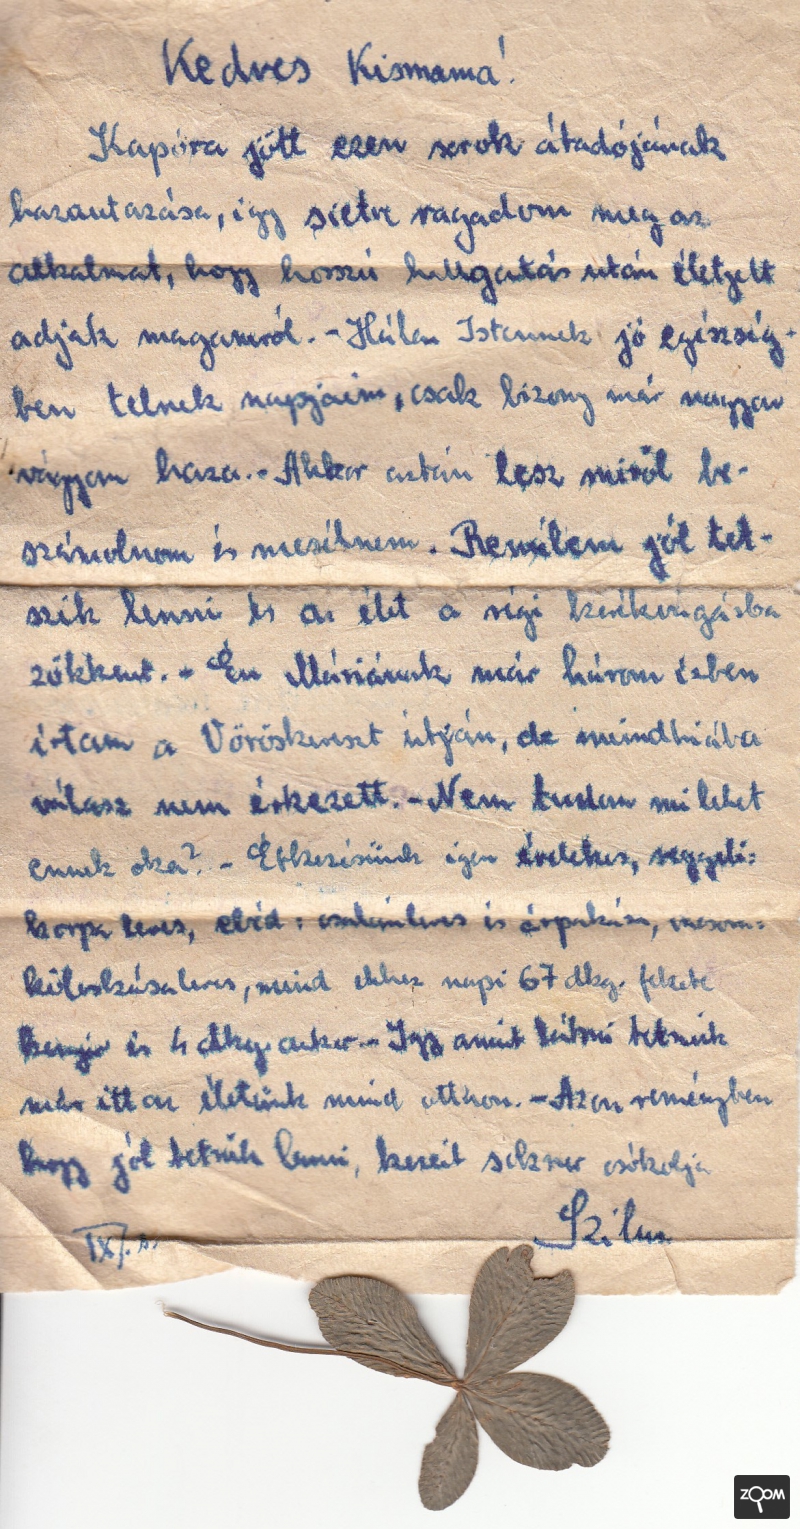 Kedves Kismama!
Kapóra jött ezen sorok átadójának
hazautazása, így sietve ragadom meg az
alkalmat, hogy hosszú hallgatás után életjelt
adjak magamról. - Hála Istennek jó egészség-
ben telnek napjaim, csak bizony már nagyon
vágyom haza. - Akkor aztán lesz miről be-
számolnom és mesélnem. Remélem jól tet-
szik lenni és az élet a régi kerékvágásba
zökkent. - Én Máriának már három ízben
írtam a Vöröskereszt útján, de mindhiába
válasz nem érkezett. - Nem tudom mi lehet
ennek oka? - Étkezésünk igen érdekes, reggeli:
korpa leves, ebéd: csalánleves és árpakása, vacsora:
köleskásaleves, mind ehhez napi 67 dkg. fekete
kenyér és 4 dkg cukor. - Így amint látni tetszik
már itt az életünk mind otthon. - Azon reményben
hogy jól tetszik lenni, kezeit sokszor csókolja
IX/.